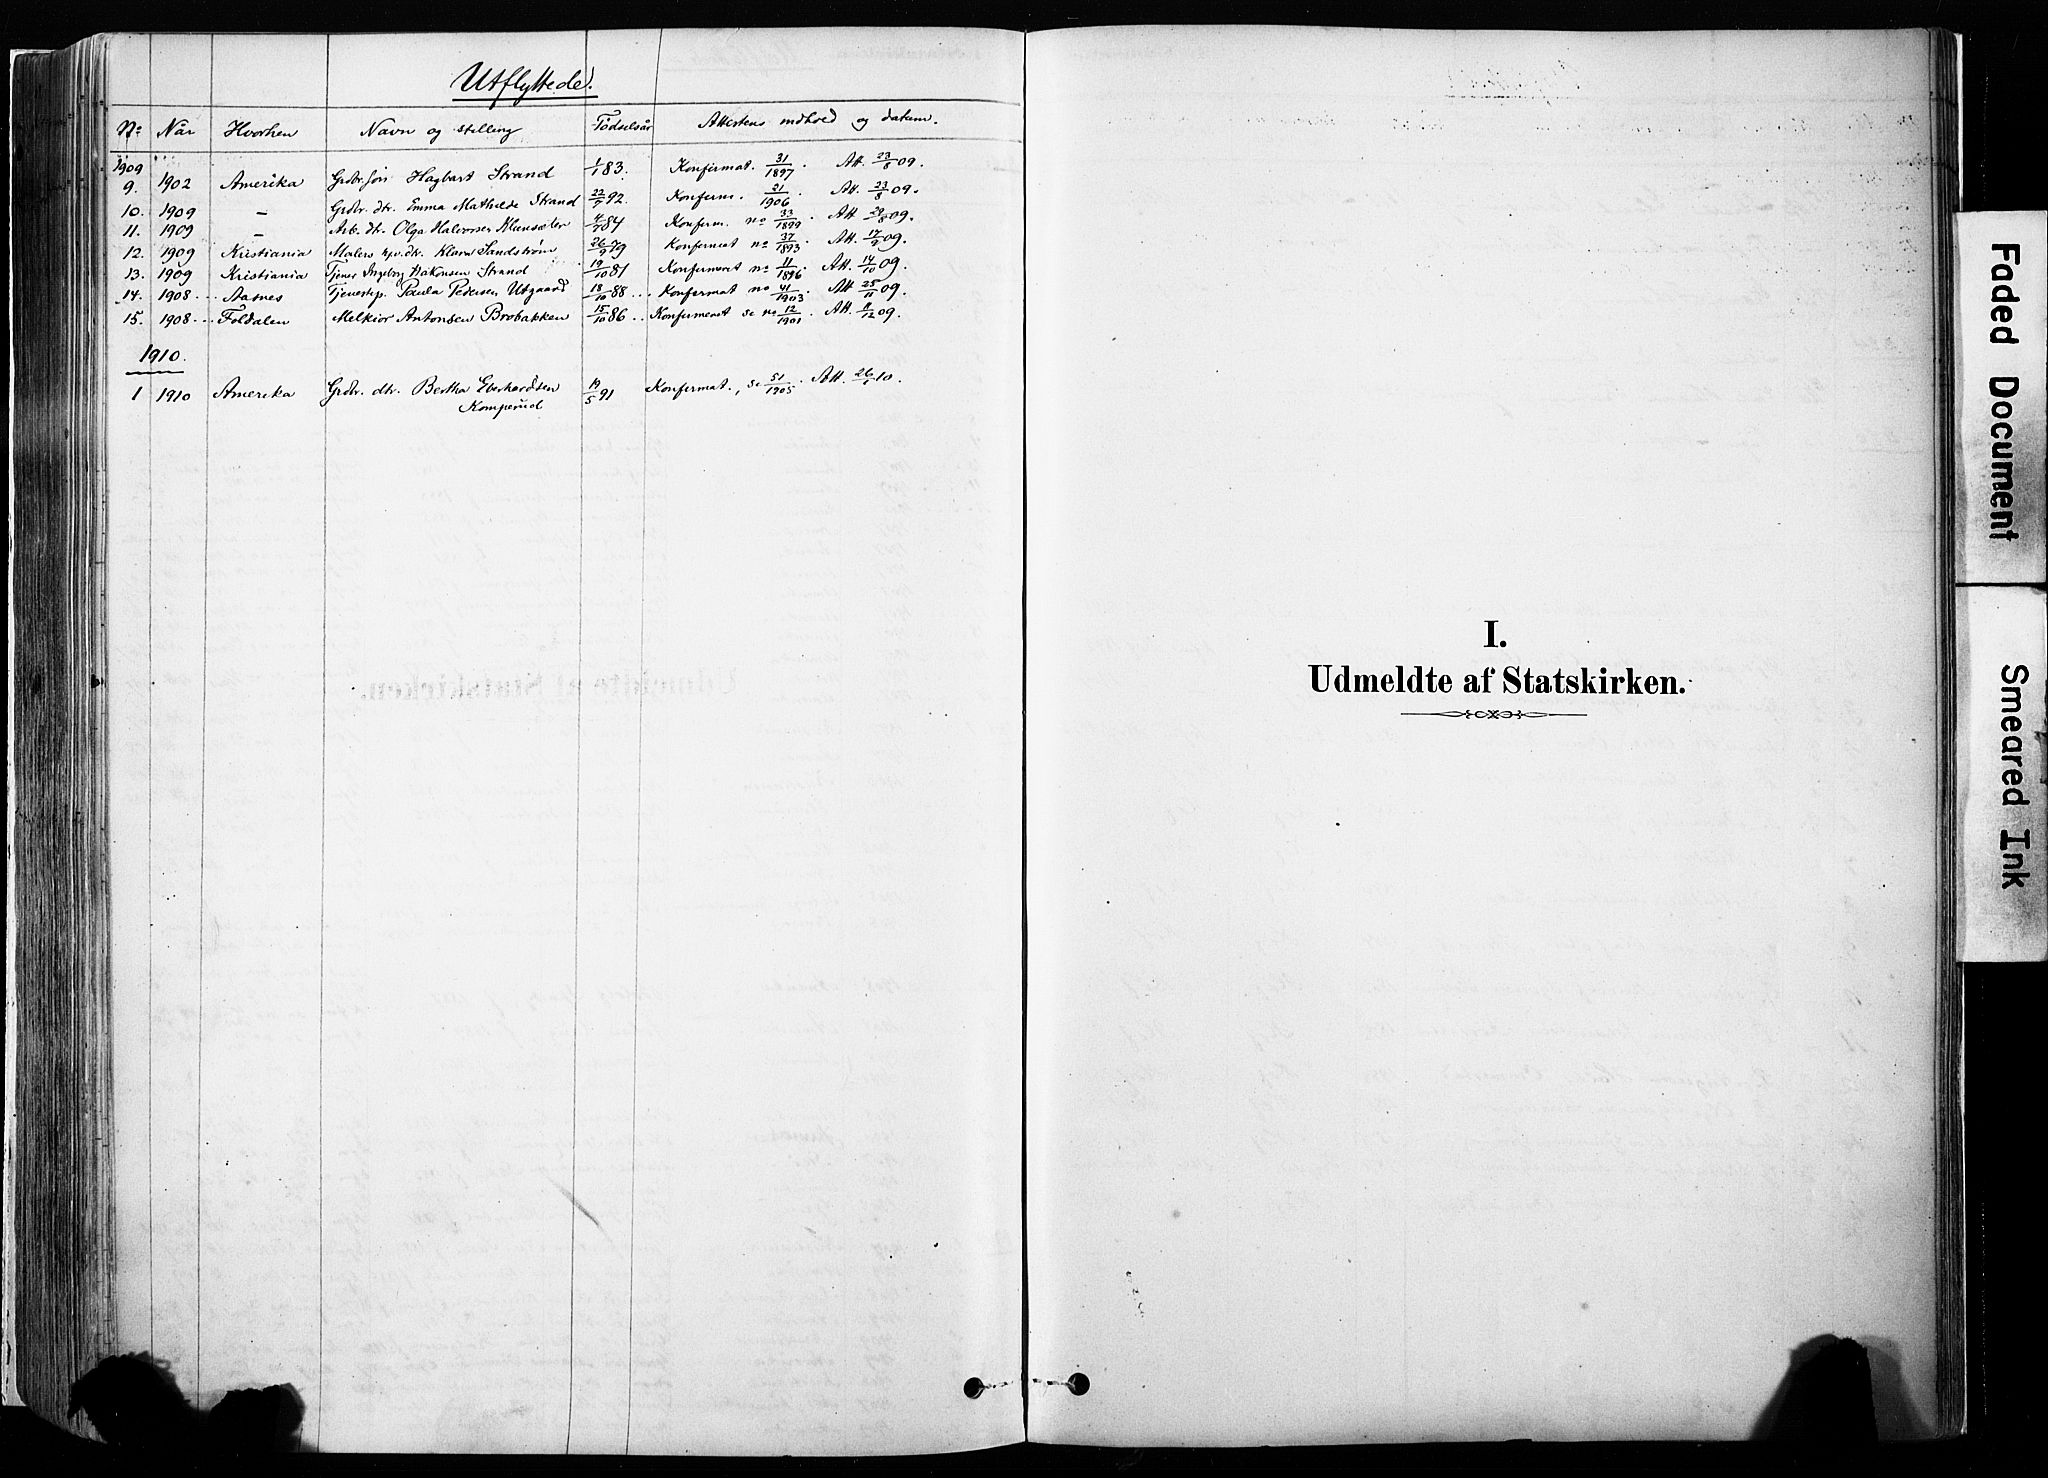 Utflyttede.
No Når Hvorhen Navn og stilling Fødselsår Attestens indhold og datum.
1909
9. 1902 Amerika Grdbr.søn Hagbart Strand 1/1 83. Konfirmat. 31/1897. Att. 23/8 09.
10. 1909 – Grdbr. dtr. Emma Mathilde Strand 22/7 92. Konferm. 21/1906. Att. 23/8 09.
11. 1909 – Arb. dtr. Olga Halvorsen 4/7 84 Konferm. no 33/1899. Att. 29/8 09.
12. 1909 Kristiania Malers dtr. Klara Sandstrøm 26/9 79 Konfermat no 37/1893. Att. 17/9 09.
13. 1909 Kristiania Tjener Ingeborg Håkonsen Strand 19/10 81 Konfermeret no 11/1896. Att. 14/10 09.
14. 1908 Aasnes Tjenestep. Paula Pedersen Utgaard 18/10 88 Konfermat no 41/1903. Att 25/11 09.
15. 1908 Foldalen Melkior Antonsen Brobakken 15/10 86 Konfermeret se no 12/1901. Att. 9/12 09.
1910.
1 1910 Amerika Grdbr. dtr. Bertha Eberhardsen 19/5 91 Konfermat., se 51/1905. Att. 26/1 10.
Komperud
I.
Udmeldte af Statskirken.
Faded Document
Smeared Ink